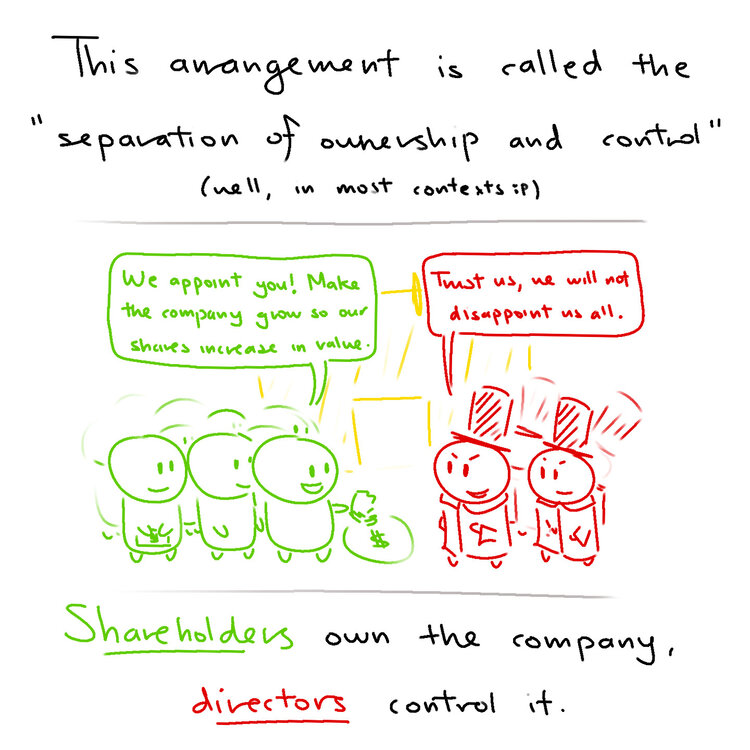 This arrangement is called the
"separation of ownership and control"
(well, in most contexts :P)
We appoint you! Make
the company grow so our
shares increase in value.
Trust us, we will not
disappoint us all.
$
Shareholders own the company,
directors control it.